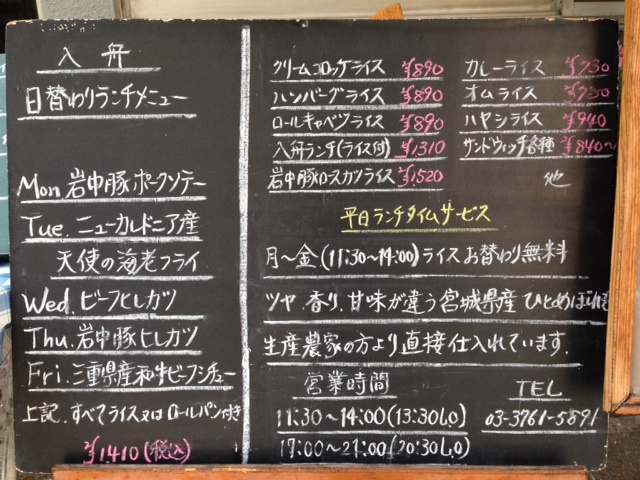 入舟
日替わりランチメニュー
Mon. 岩中豚ポークソテー
Tue. ニューカルドニア産
天使の海老フライ
Wed. ビーフヒレカツ
Thu. 岩中豚ヒレカツ
Fri. 三重県産和牛ビーフシチュー
上記、すべてライス又はロールパン付き
¥1,410(税込)
クリームコロッケライス ¥890
ハンバーグライス ¥890
ロールキャベツライス ¥890
入舟ランチ(ライス付) ¥1310
岩中豚ロースカツライス ¥1520
カレーライス ¥730
オムライス ¥780
ハヤシライス ¥940
サンドウィッチ各種 ¥840〜
他
平日ランチタイムサービス
月〜金(11:30〜14:00)ライスお替わり無料
ツヤ、香り、甘味が違う宮城県産ひとめぼれを
生産農家の方より直接仕入れています.
営業時間
11:30〜14:00(13:30L,O)
17:00〜21:00(20:30L,O)
TEL
03-3761-5891